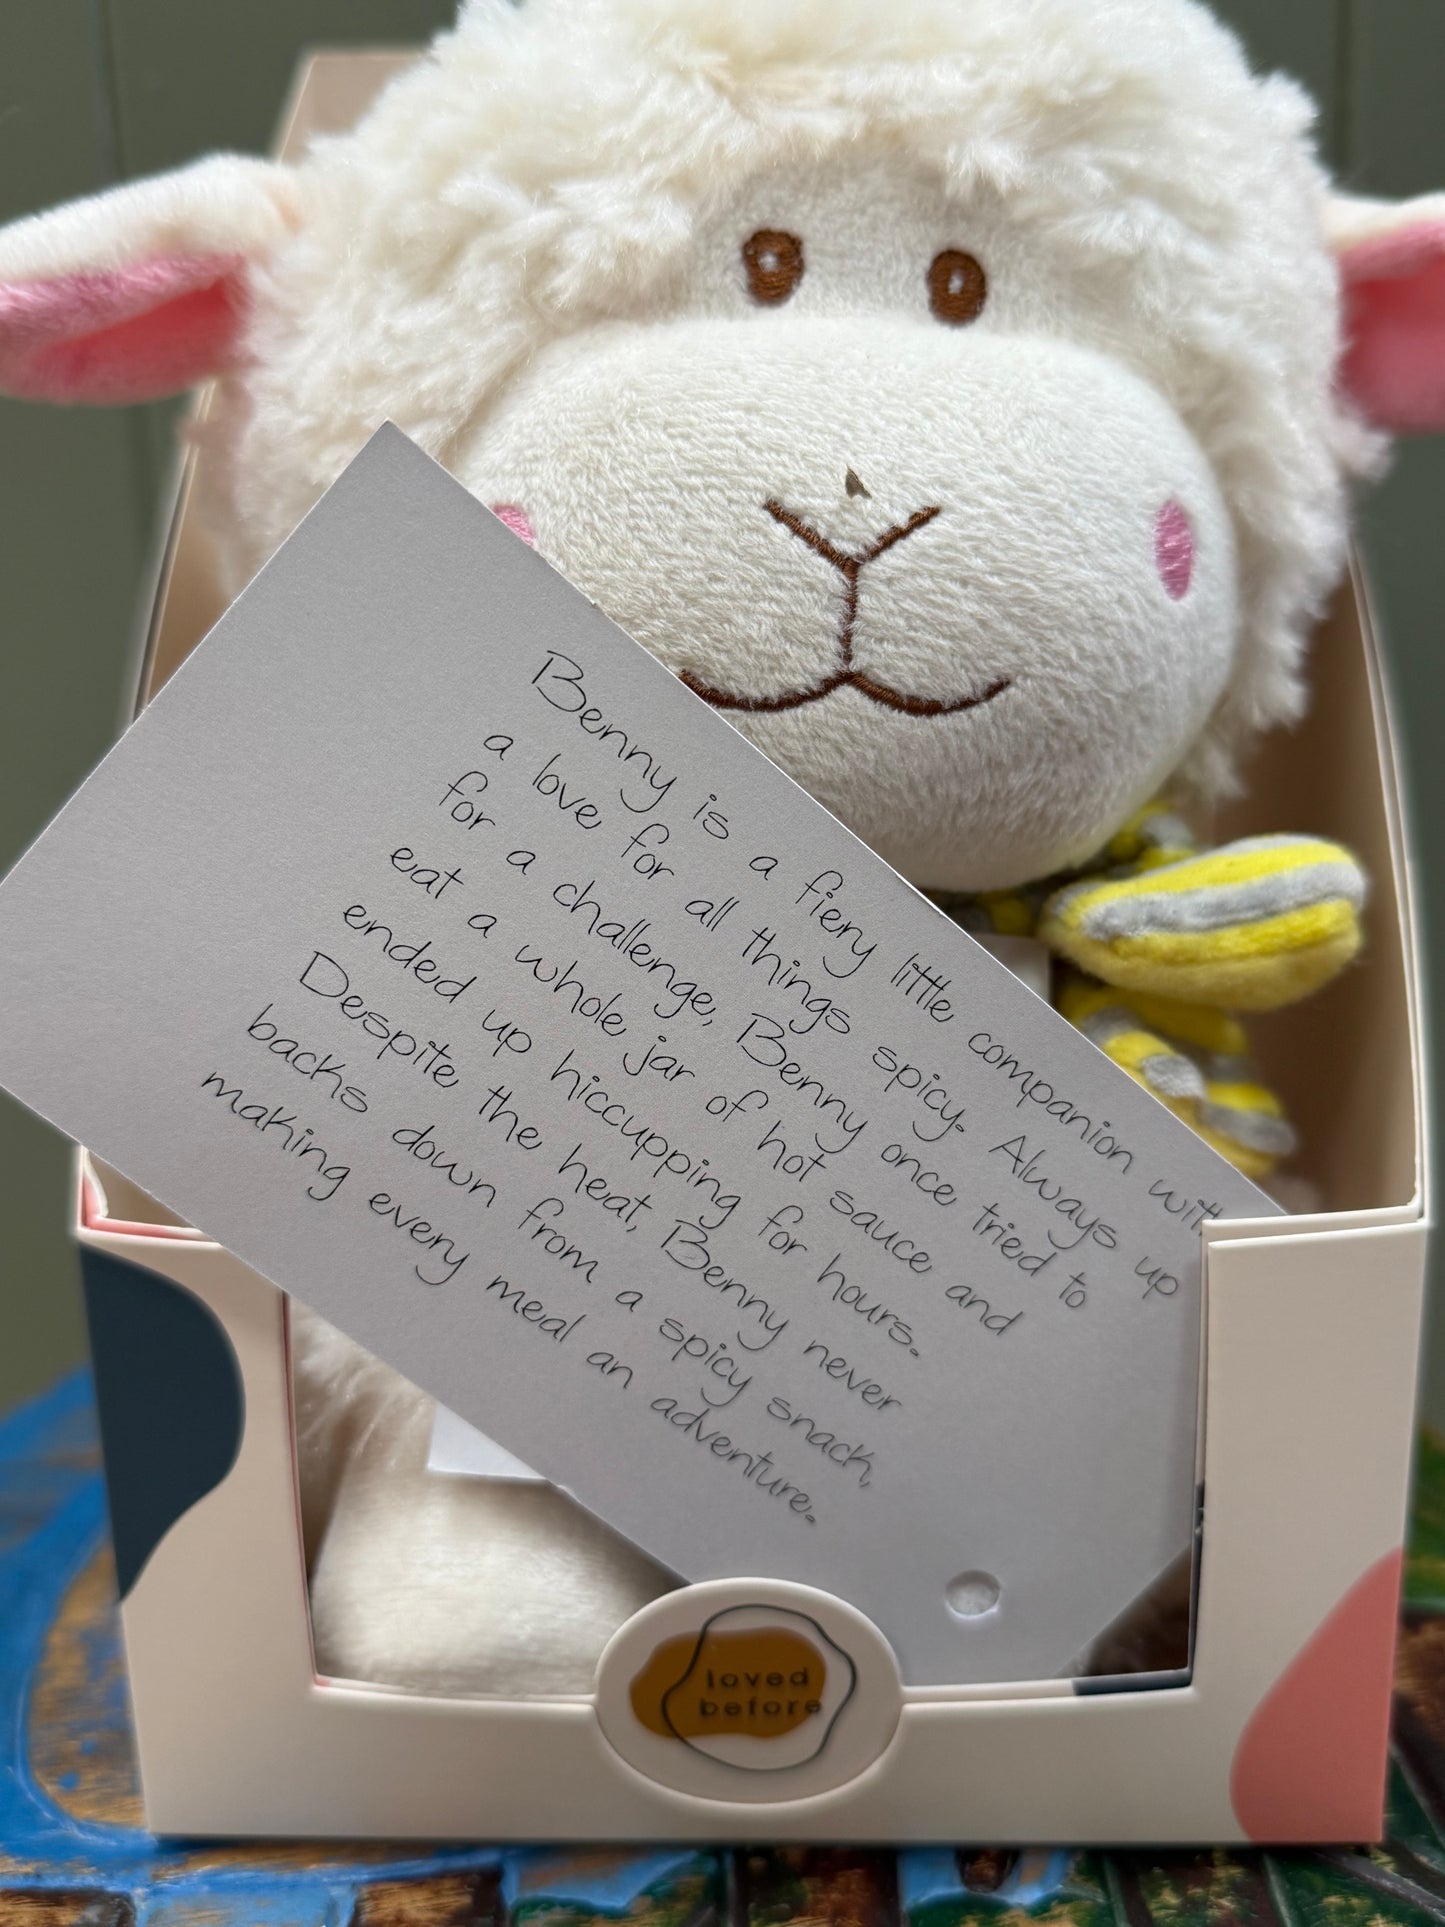 Benny is a fiery little companion with
a love for all things spicy. Always up
for a challenge, Benny once tried to
eat a whole jar of hot sauce and
ended up hiccupping for hours.
Despite the heat, Benny never
backs down from a spicy snack,
making every meal an adventure.
loved
before